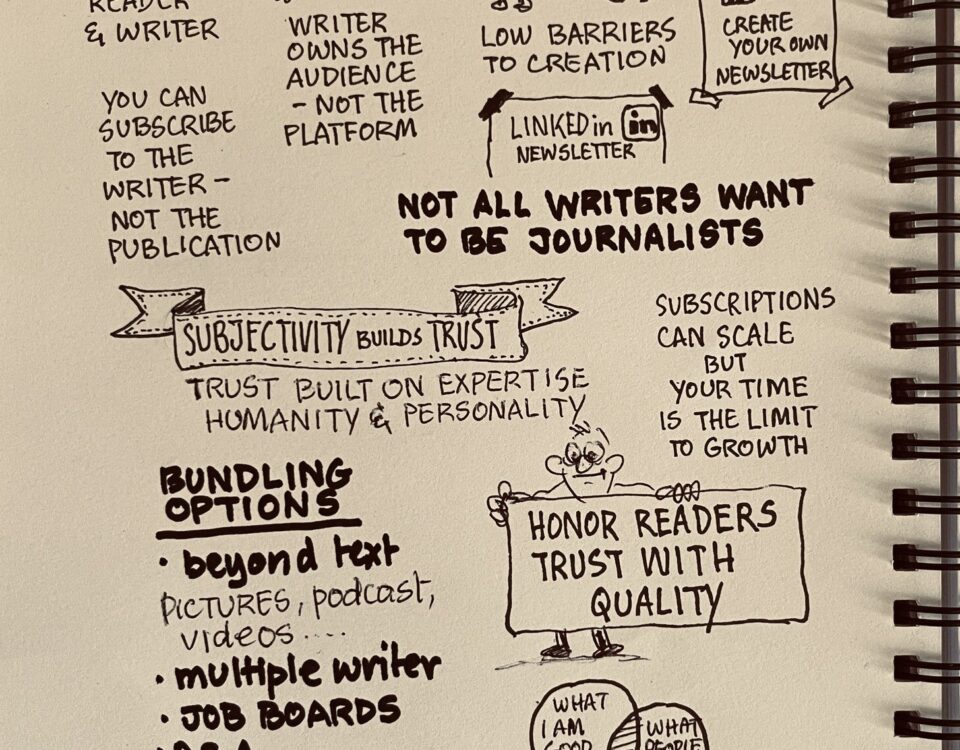 READER
& WRITER
YOU CAN
SUBSCRIBE
TO THE
WRITER -
NOT THE
PUBLICATION
WRITER
OWNS THE
AUDIENCE
- NOT THE
PLATFORM
LOW BARRIERS
TO CREATION
CREATE
YOUR OWN
NEWSLETTER
LINKEDin in
NEWSLETTER
NOT ALL WRITERS WANT
TO BE JOURNALISTS
SUBJECTIVITY BUILDS TRUST
TRUST BUILT ON EXPERTISE
HUMANITY & PERSONALITY
SUBSCRIPTIONS
CAN SCALE
BUT
YOUR TIME
IS THE LIMIT
TO GROWTH
BUNDLING
OPTIONS
• beyond text
PICTURES, podcast,
videos ....
• multiple writer
• JOB BOARDS
HONOR READERS
TRUST WITH
QUALITY
WHAT
I AM
GOOD
WHAT
PEOPLE